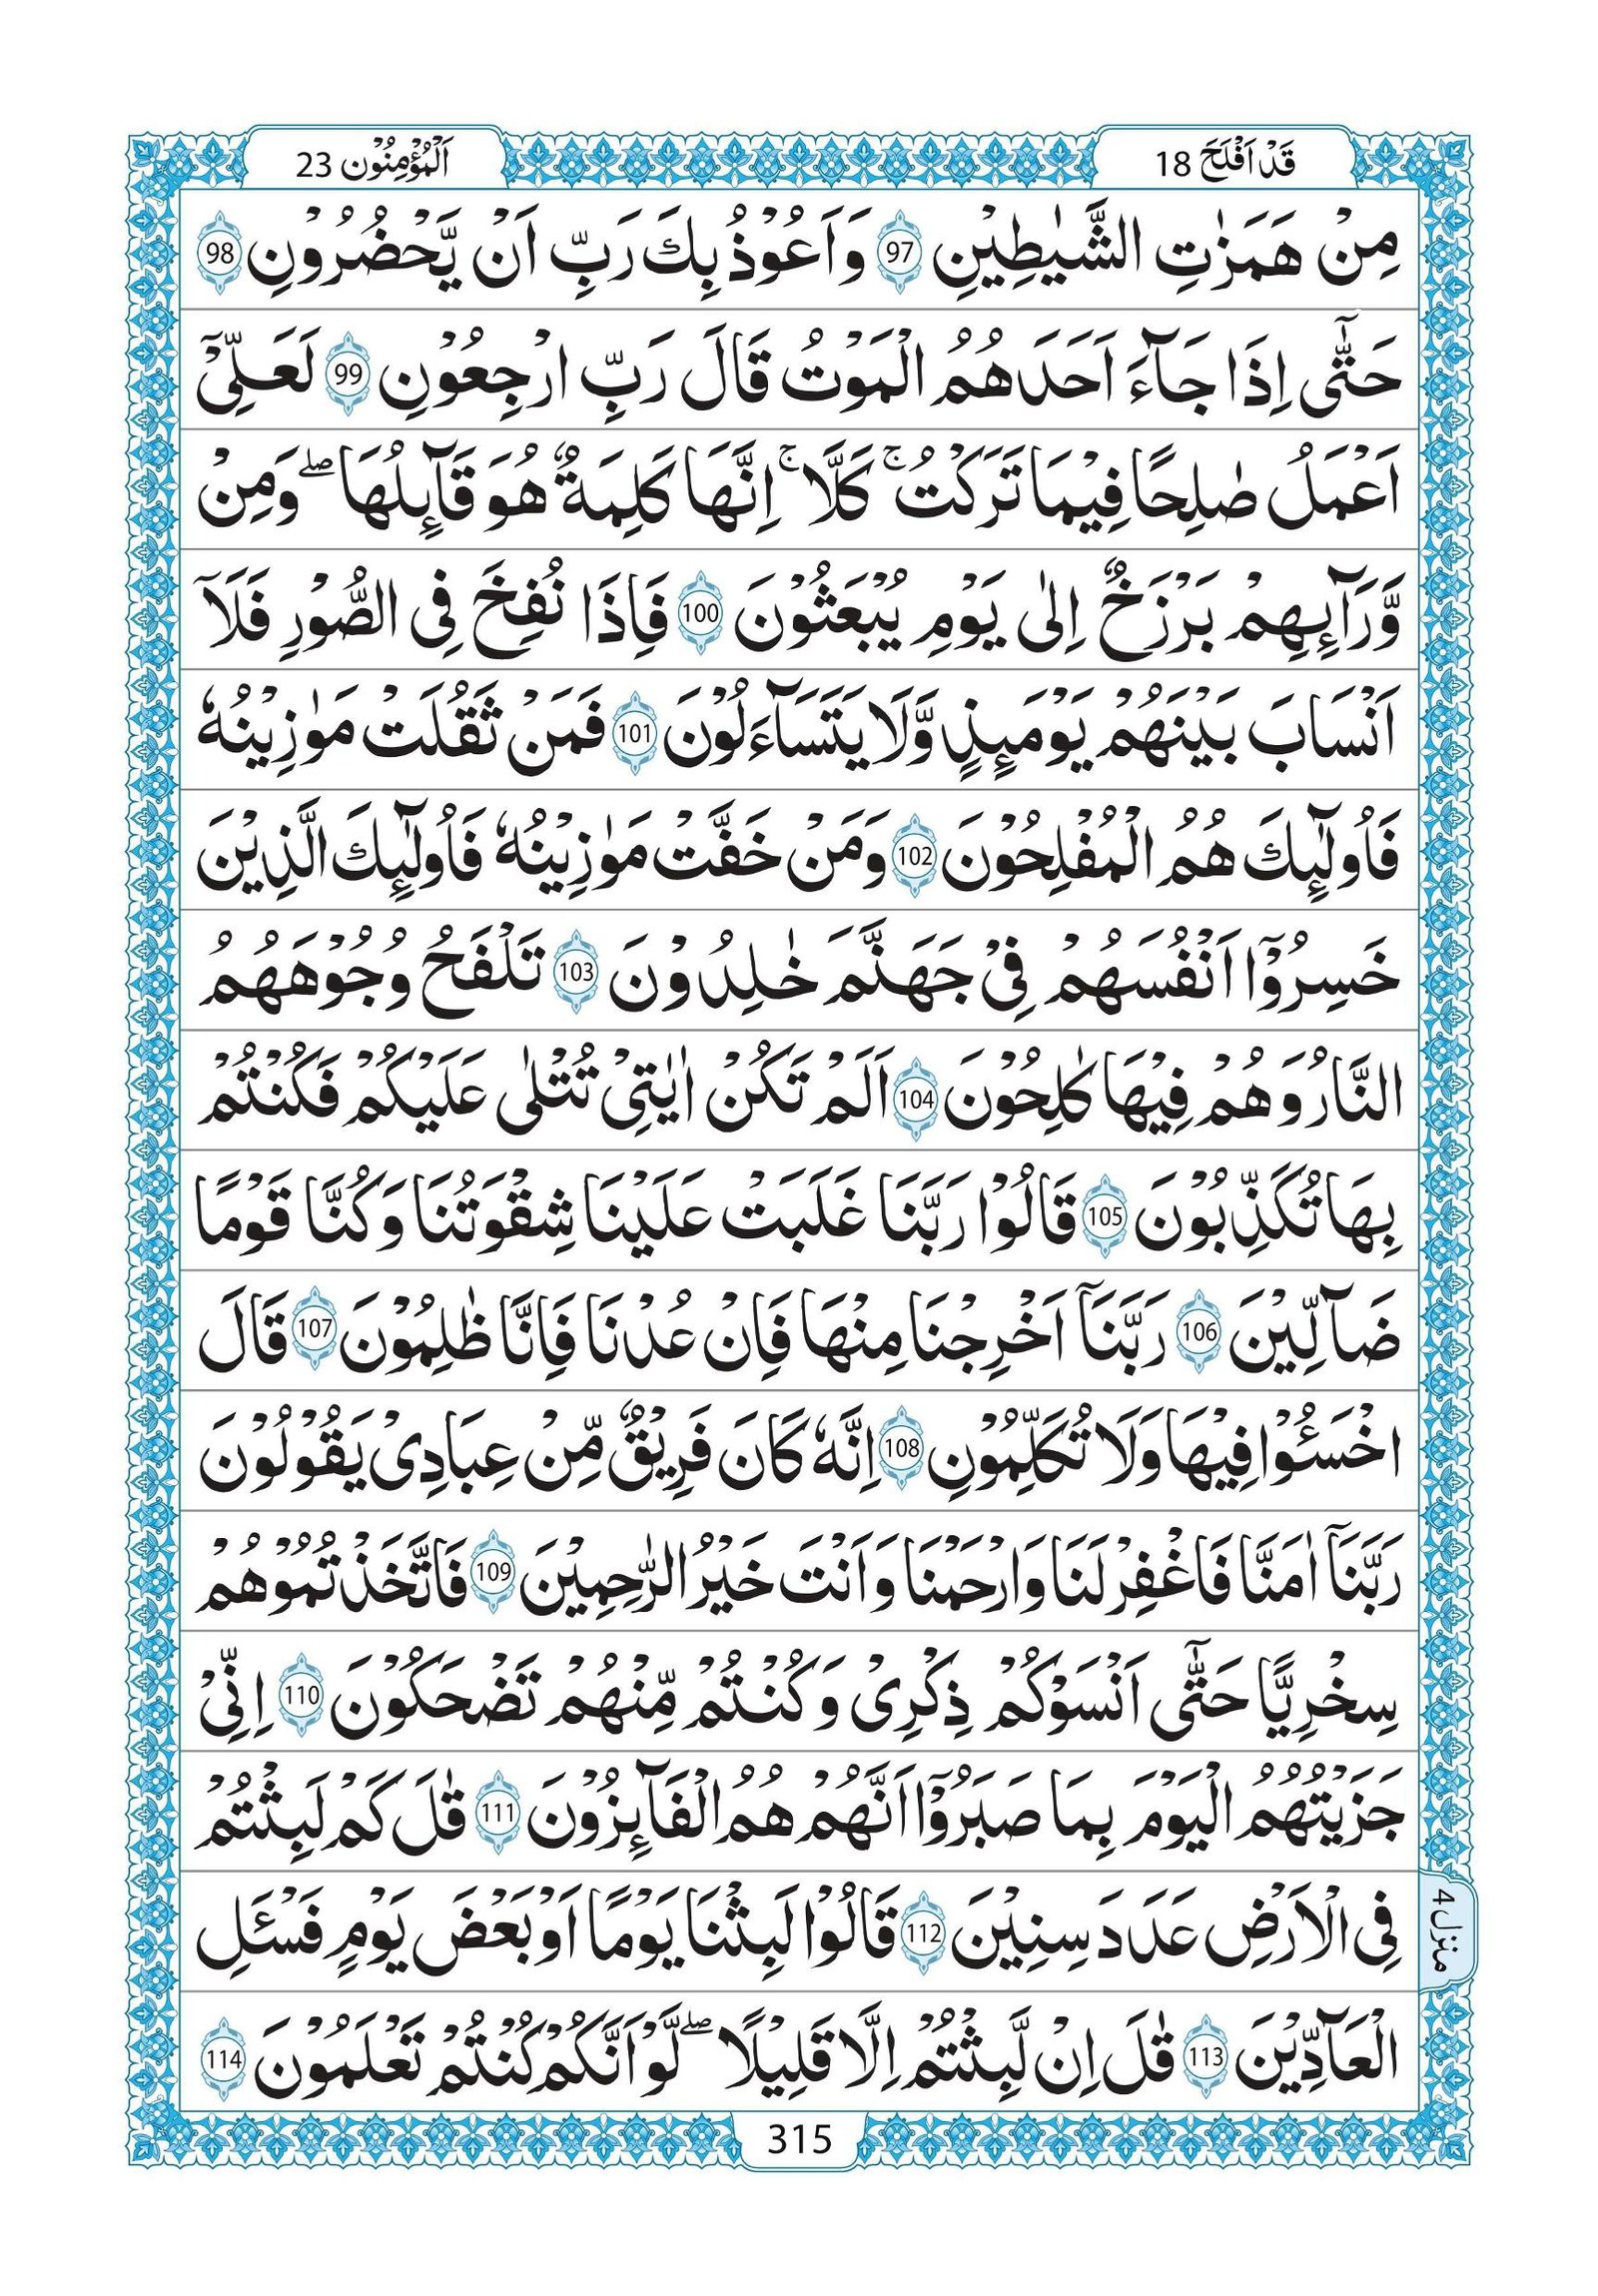 قَدْ اَفْلَحَ 18
اَلْمُؤْمِنُوْن 23
مِنْ هَمَزٰتِ الشَّيٰطِيْنِ 97 وَاَعُوْذُ بِكَ رَبِّ اَنْ يَّحْضُرُوْنِ 98
حَتّٰٓى اِذَا جَآءَ اَحَدَهُمُ الْمَوْتُ قَالَ رَبِّ ارْجِعُوْنِ 99 لَعَلِّيْٓ
اَعْمَلُ صٰلِحًا فِيْمَا تَرَكْتُ ۚ كَلَّا ۚ اِنَّهَا كَلِمَةٌ هُوَ قَآئِلُهَا ۖ وَمِنْ
وَّرَآئِهِمْ بَرْزَخٌ اِلٰى يَوْمِ يُبْعَثُوْنَ 100 فَاِذَا نُفِخَ فِى الصُّوْرِ فَلَآ
اَنْسَابَ بَيْنَهُمْ يَوْمَئِذٍ وَّلَا يَتَسَآءَلُوْنَ 101 فَمَنْ ثَقُلَتْ مَوٰزِيْنُهٗ
فَاُولٰٓئِكَ هُمُ الْمُفْلِحُوْنَ 102 وَمَنْ خَفَّتْ مَوٰزِيْنُهٗ فَاُولٰٓئِكَ الَّذِيْنَ
خَسِرُوْٓا اَنْفُسَهُمْ فِيْ جَهَنَّمَ خٰلِدُوْنَ 103 تَلْفَحُ وُجُوْهَهُمُ
النَّارُ وَهُمْ فِيْهَا كٰلِحُوْنَ 104 اَلَمْ تَكُنْ اٰيٰتِيْ تُتْلٰى عَلَيْكُمْ فَكُنْتُمْ
بِهَا تُكَذِّبُوْنَ 105 قَالُوْا رَبَّنَا غَلَبَتْ عَلَيْنَا شِقْوَتُنَا وَكُنَّا قَوْمًا
ضَآلِّيْنَ 106 رَبَّنَآ اَخْرِجْنَا مِنْهَا فَاِنْ عُدْنَا فَاِنَّا ظٰلِمُوْنَ 107 قَالَ
اخْسَـُٔوْا فِيْهَا وَلَا تُكَلِّمُوْنِ 108 اِنَّهٗ كَانَ فَرِيْقٌ مِّنْ عِبَادِيْ يَقُوْلُوْنَ
رَبَّنَآ اٰمَنَّا فَاغْفِرْ لَنَا وَارْحَمْنَا وَاَنْتَ خَيْرُ الرّٰحِمِيْنَ 109 فَاتَّخَذْتُمُوْهُمْ
سِخْرِيًّا حَتّٰٓى اَنْسَوْكُمْ ذِكْرِيْ وَكُنْتُمْ مِّنْهُمْ تَضْحَكُوْنَ 110 اِنِّيْ
جَزَيْتُهُمُ الْيَوْمَ بِمَا صَبَرُوْٓا اَنَّهُمْ هُمُ الْفَآئِزُوْنَ 111 قٰلَ كَمْ لَبِثْتُمْ
فِى الْاَرْضِ عَدَدَ سِنِيْنَ 112 قَالُوْا لَبِثْنَا يَوْمًا اَوْ بَعْضَ يَوْمٍ فَسْـَٔلِ
منزل ٤
الْعَآدِّيْنَ 113 قٰلَ اِنْ لَّبِثْتُمْ اِلَّا قَلِيْلًا ۖ لَّوْ اَنَّكُمْ كُنْتُمْ تَعْلَمُوْنَ 114
315